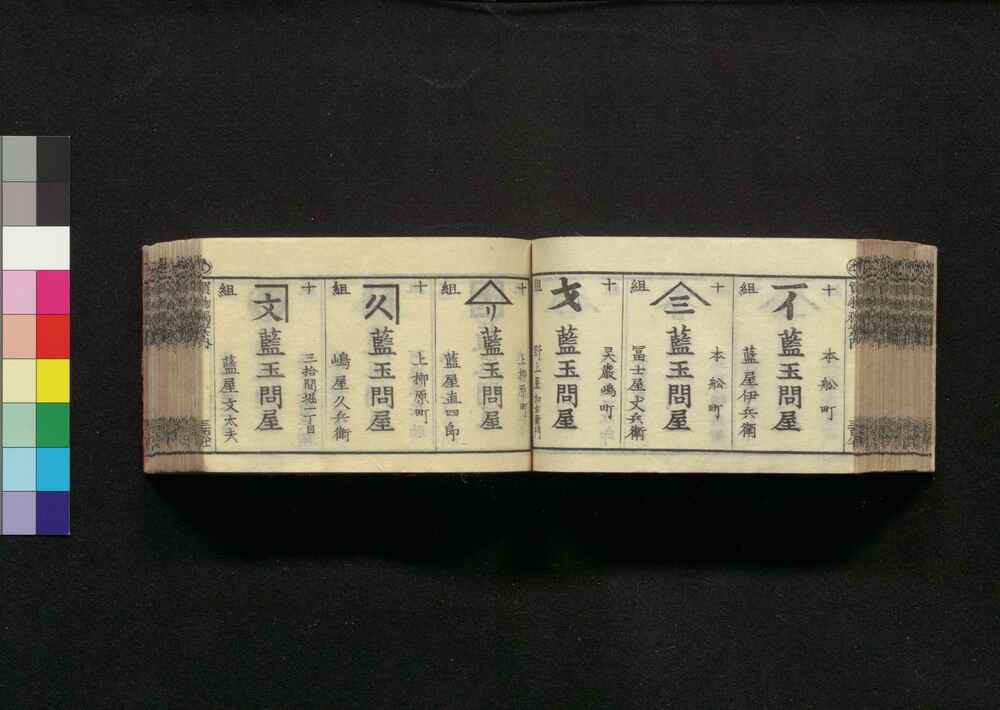 十組
本舩町
藍玉問屋
藍屋伊兵衛
十組
三
本舩町
藍玉問屋
冨士屋丈兵衛
十組
灵巌嶋町
藍玉問屋
野上屋加右衛門
十組
リ
上柳原町
藍玉問屋
藍屋直四郎
十組
久
上柳原町
藍玉問屋
嶋屋久兵衛
十組
文
三拾間堀二丁目
藍玉問屋
藍屋文太夫